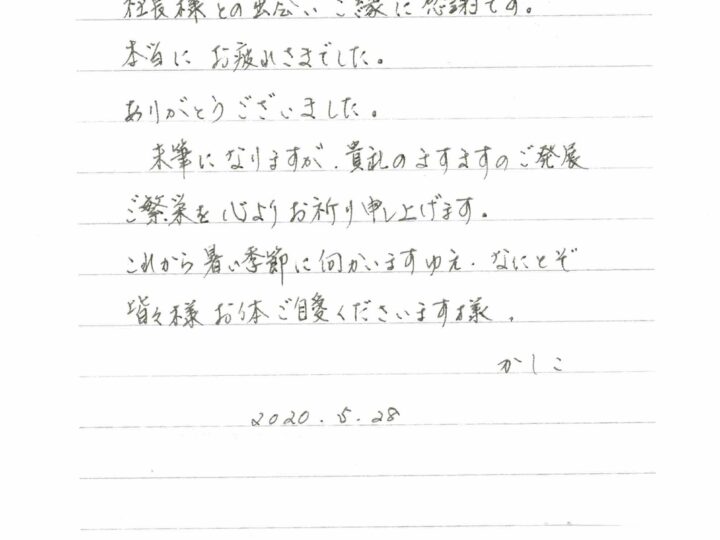 社長様との出会い ご縁に感謝です。
本当に お疲れさまでした。
ありがとうございました。
末筆になりますが、貴社のますますのご発展
ご繁栄を心よりお祈り申し上げます。
これから暑い季節に向かいますゆえ、なにとぞ
皆々様お体ご自愛くださいます様、
かしこ
2020.5.28